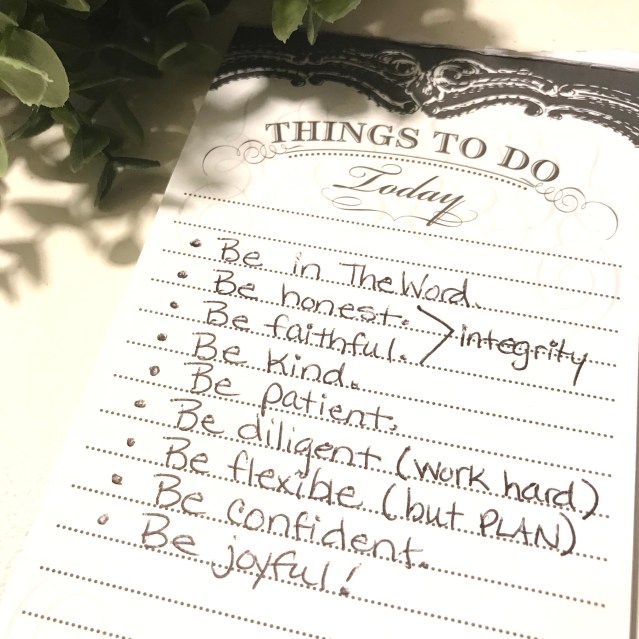 THINGS TO DO
Today
• Be in The Word.
• Be honest. > integrity
• Be faithful.
• Be kind.
• Be patient.
• Be diligent (work hard)
• Be flexible (but PLAN)
• Be confident.
• Be joyful!